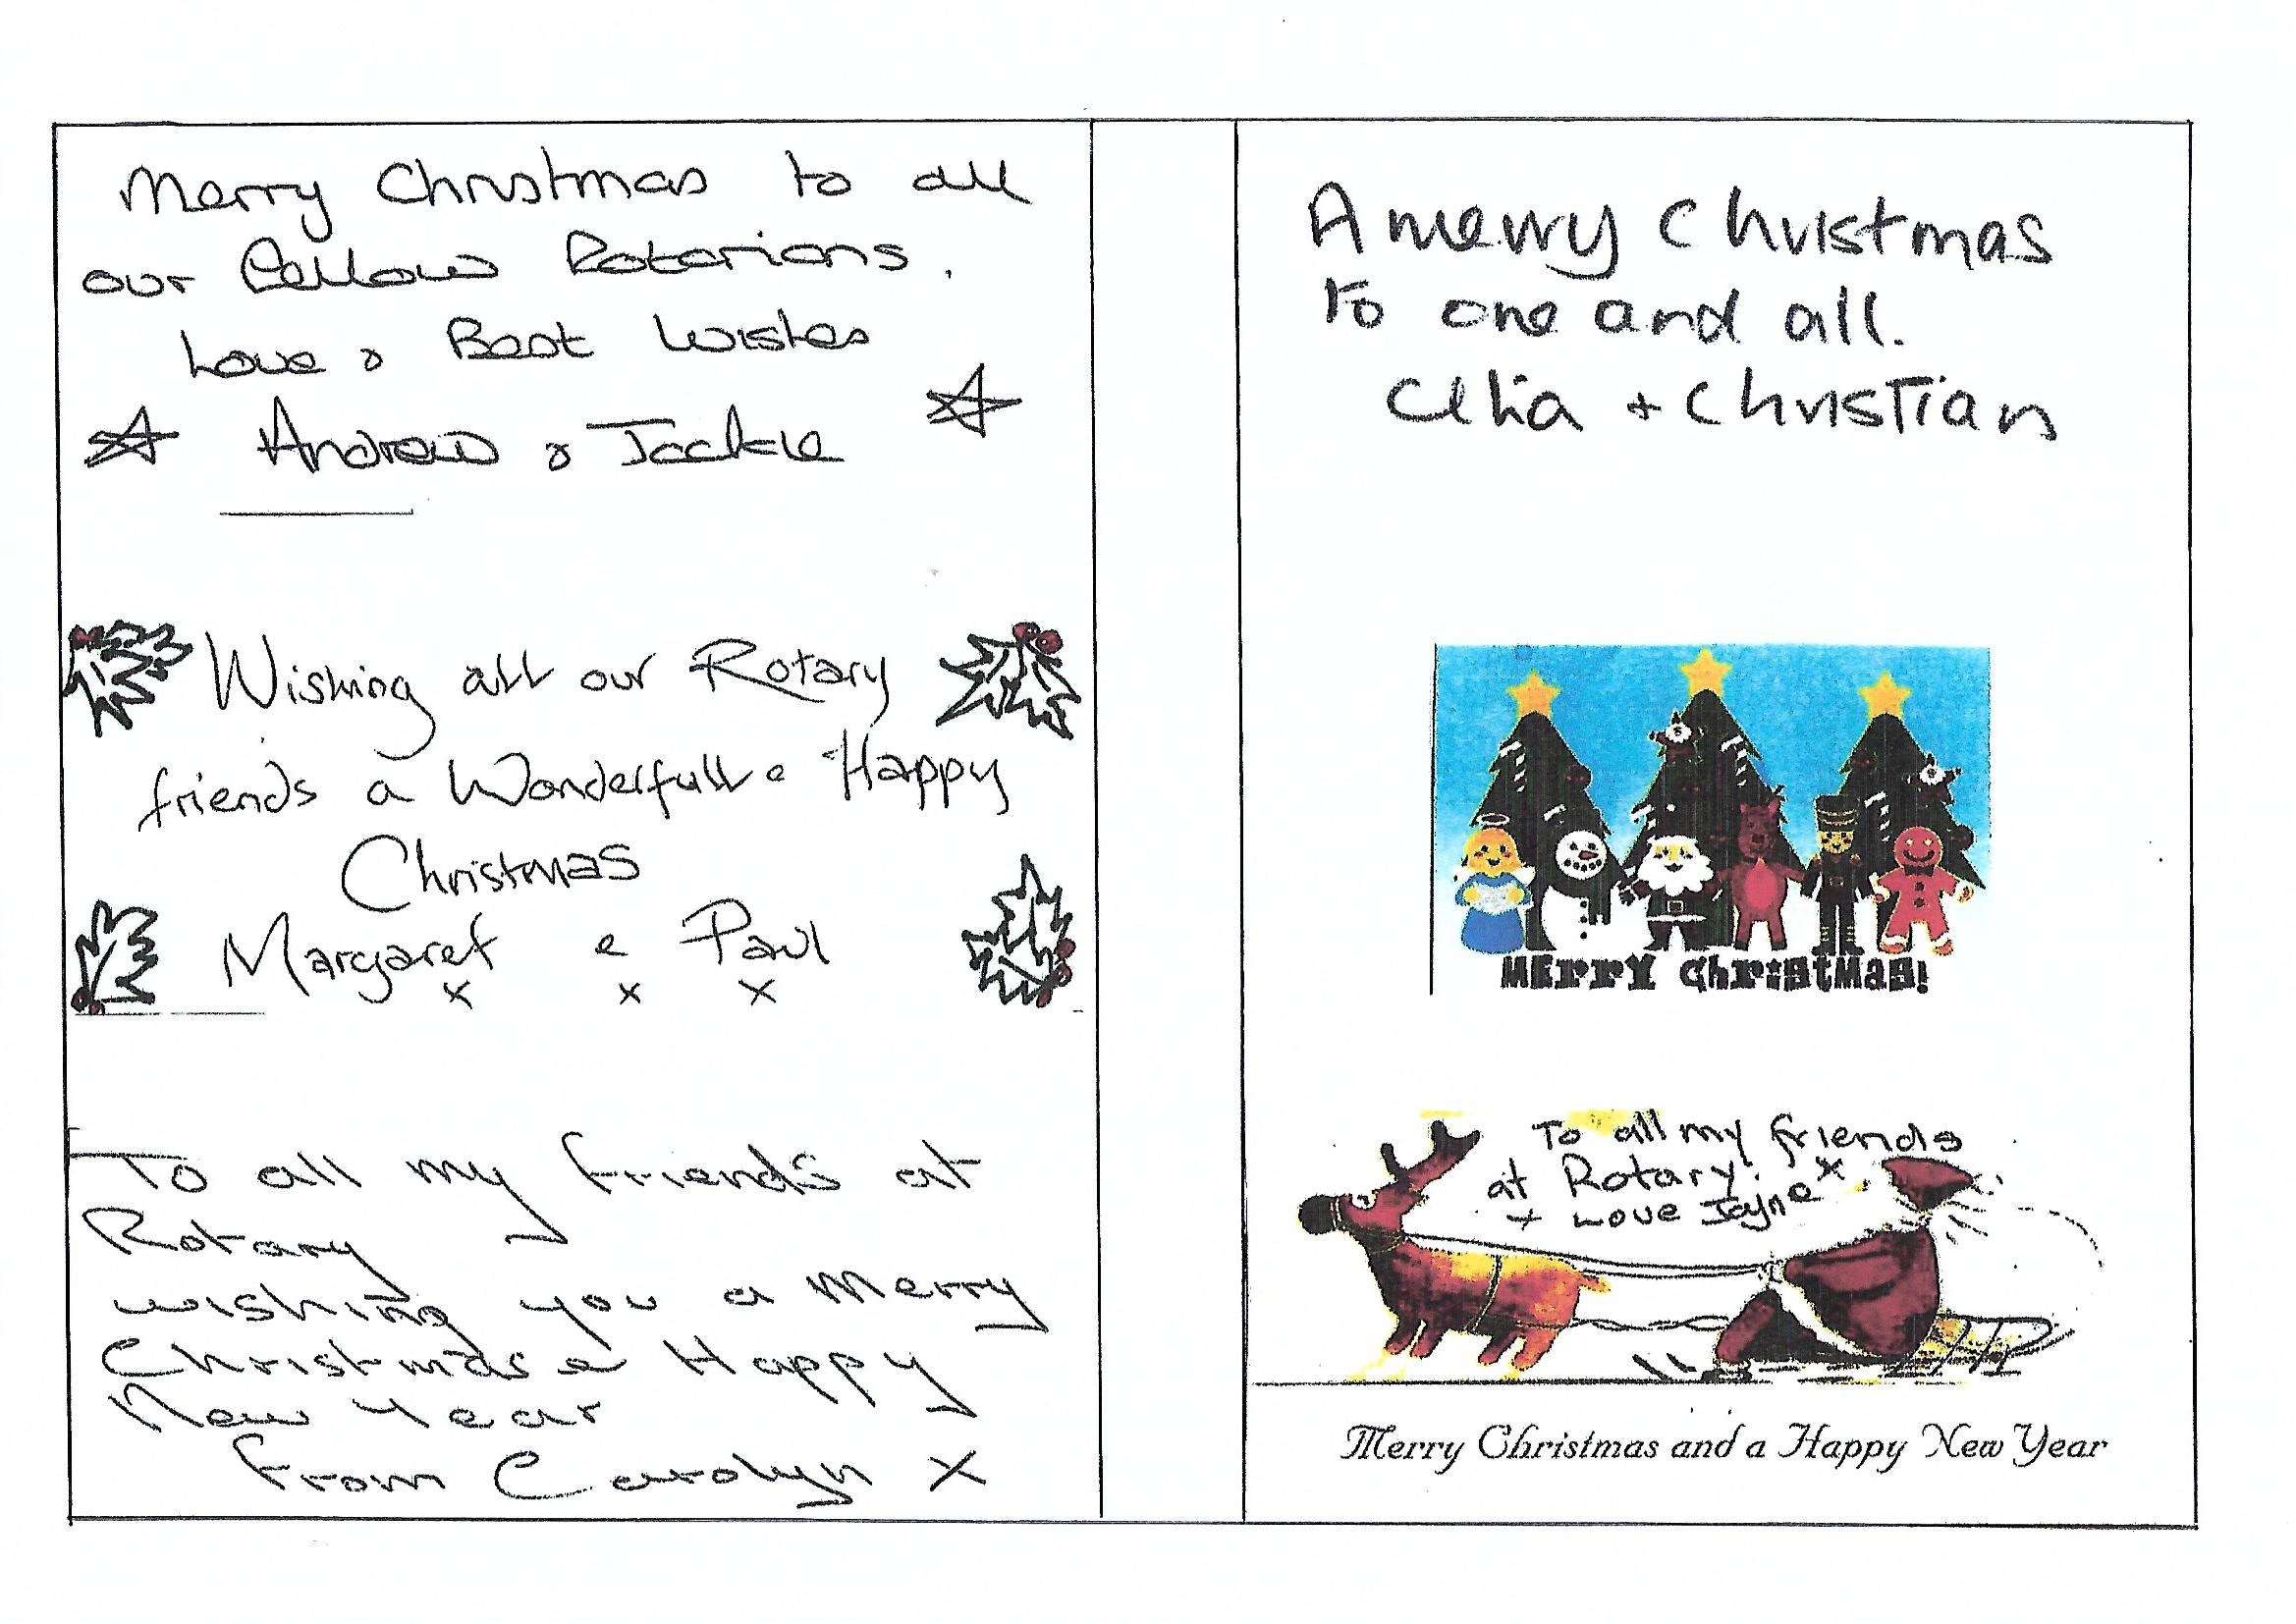 Merry Christmas to all
our fellow Rotarians.
Love & Best Wishes
Andrew & Jackie
Wishing all our Rotary
friends a Wonderfull & Happy
Christmas
Margaret & Paul
x x x
To all my friends at
Rotary
wishing you a Merry
Christmas & Happy
New Year
from Carolyn x
A merry Christmas
to one and all.
Celia + Christian
MERRY CHRISTMAS!
To all my friends
at Rotary. x
x Love Jayne
Merry Christmas and a Happy New Year